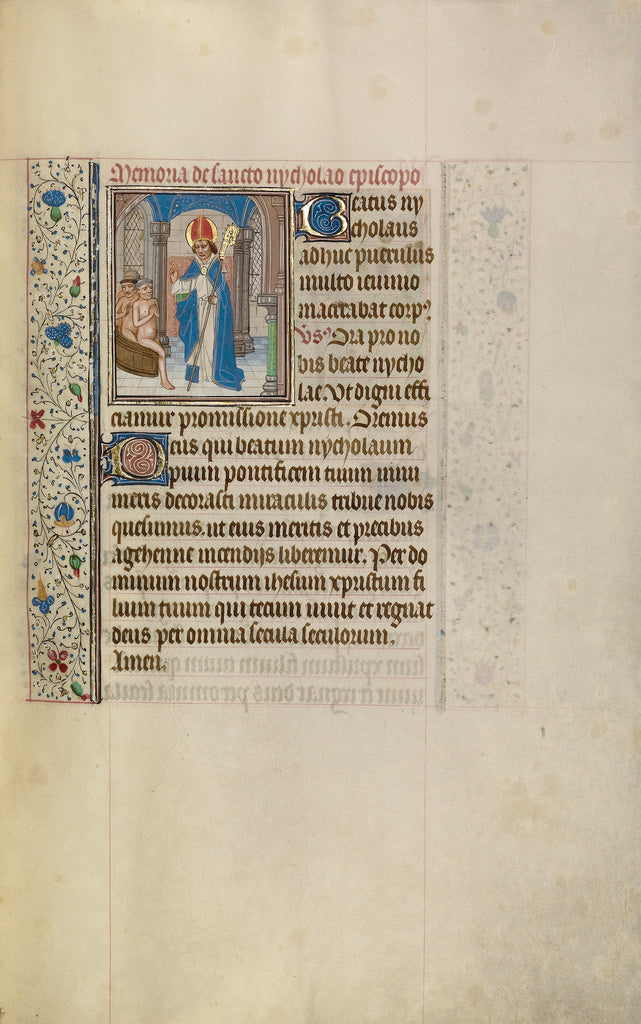 Memoria de sancto nycholao episcopo
Beatus ny
cholaus
adhuc puerulus
multo ieiunio
macerabat corpꝰ
Vsꝰ Ora pro no
bis beate nycho
lae. Vt digni effi
ciamur promissione xpristi. Oremus
Deus qui beatum nycholaum
pium pontificem tuum innu
meris decorasti miraculis tribue nobis
quesumus. ut eius meritis et precibus
agehenne incendijs liberemur. Per do
minum nostrum ihesum xpristum fi
lium tuum qui tecum uiuit et regnat
deus per omnia secula seculorum.
Amen.